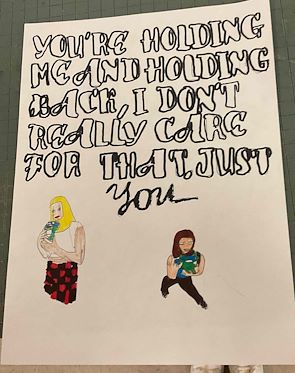 YOU'RE HOLDING
ME AND HOLDING
BACK, I DON'T
REALLY CARE
FOR THAT, JUST
YOU